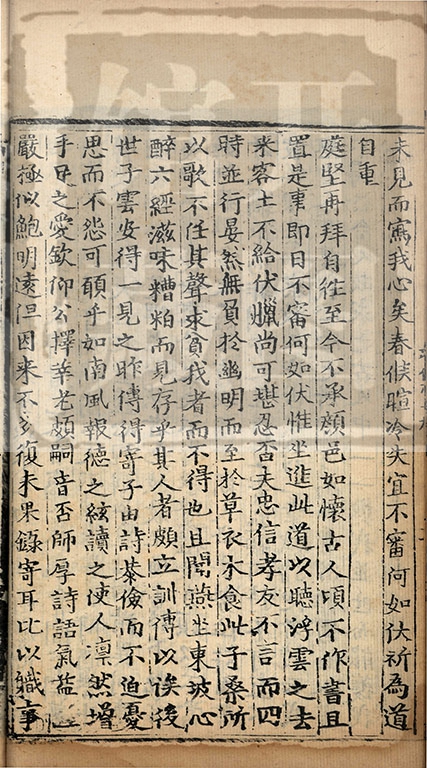 未見而寫我心矣春候暄冷失宜不審何如伏祈為道
自重
庭堅再拜自徃至今不承顔色如懷古人頃不作書且
置是事即日不審何如伏惟坐進此道以聽浮雲之去
来客土不給伏臘尚可堪忍否夫忠信孝友不言而四
時並行晏然無負於幽明而至於草衣木食此子桑所
以歌不任其聲求貧我者而不得也且聞燕坐東坡心
醉六經滋味糟粕而見存乎其人者頗立訓傳以俟後
世子雲安得一見之昨傳得寄子由詩恭儉而不迫憂
思而不怨可頋乎如南風報德之絃讀之使人凛然增
手足之愛欽仰公擇莘老頗嗣音否師厚詩語氣益
嚴極似鮑明遠但因来不多復未果錄寄耳比以職事